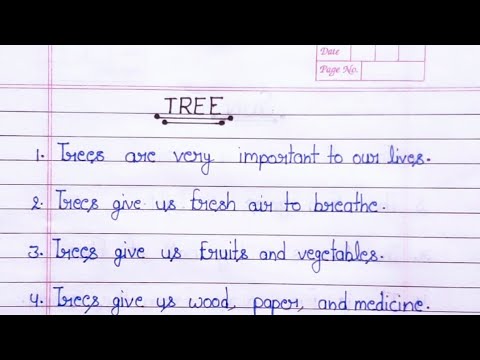 Date
Page No.
TREE
1. Trees are very important to our lives.
2. Trees give us fresh air to breathe.
3. Trees give us fruits and vegetables.
4. Trees give us wood, paper, and medicine.